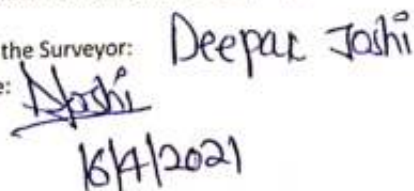 the Surveyor: Deepak Joshi
e: DJoshi
16/4/2021